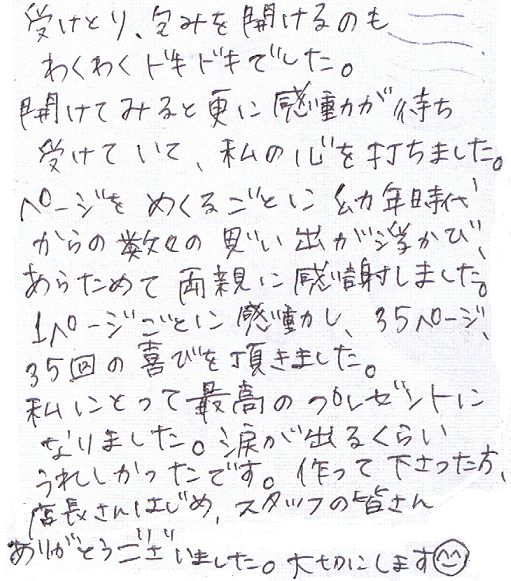 受けとり、包みを開けるのも
わくわくドキドキでした。
開けてみると更に感動が待ち
受けていて、私の心を打ちました。
ページをめくるごとに幼年時代
からの数々の思い出が浮かび、
あらためて両親に感謝しました。
1ページごとに感動し、35ページ、
35回の喜びを頂きました。
私にとって最高のプレゼントに
なりました。涙が出るくらい
うれしかったです。作って下さった方、
店長さんはじめ、スタッフの皆さん
ありがとうございました。大切にします